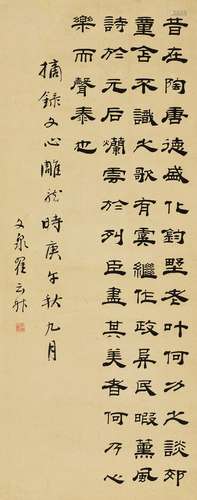 昔在陶唐德盛化鈞埜老吐何力之談郊
童含不識之歌有虞繼作政阜民暇薰風
詩於元后爛雲於列臣盡其美者何乃心
樂而聲泰也
摘錄文心雕龍時庚午秋九月
文泉翟云升